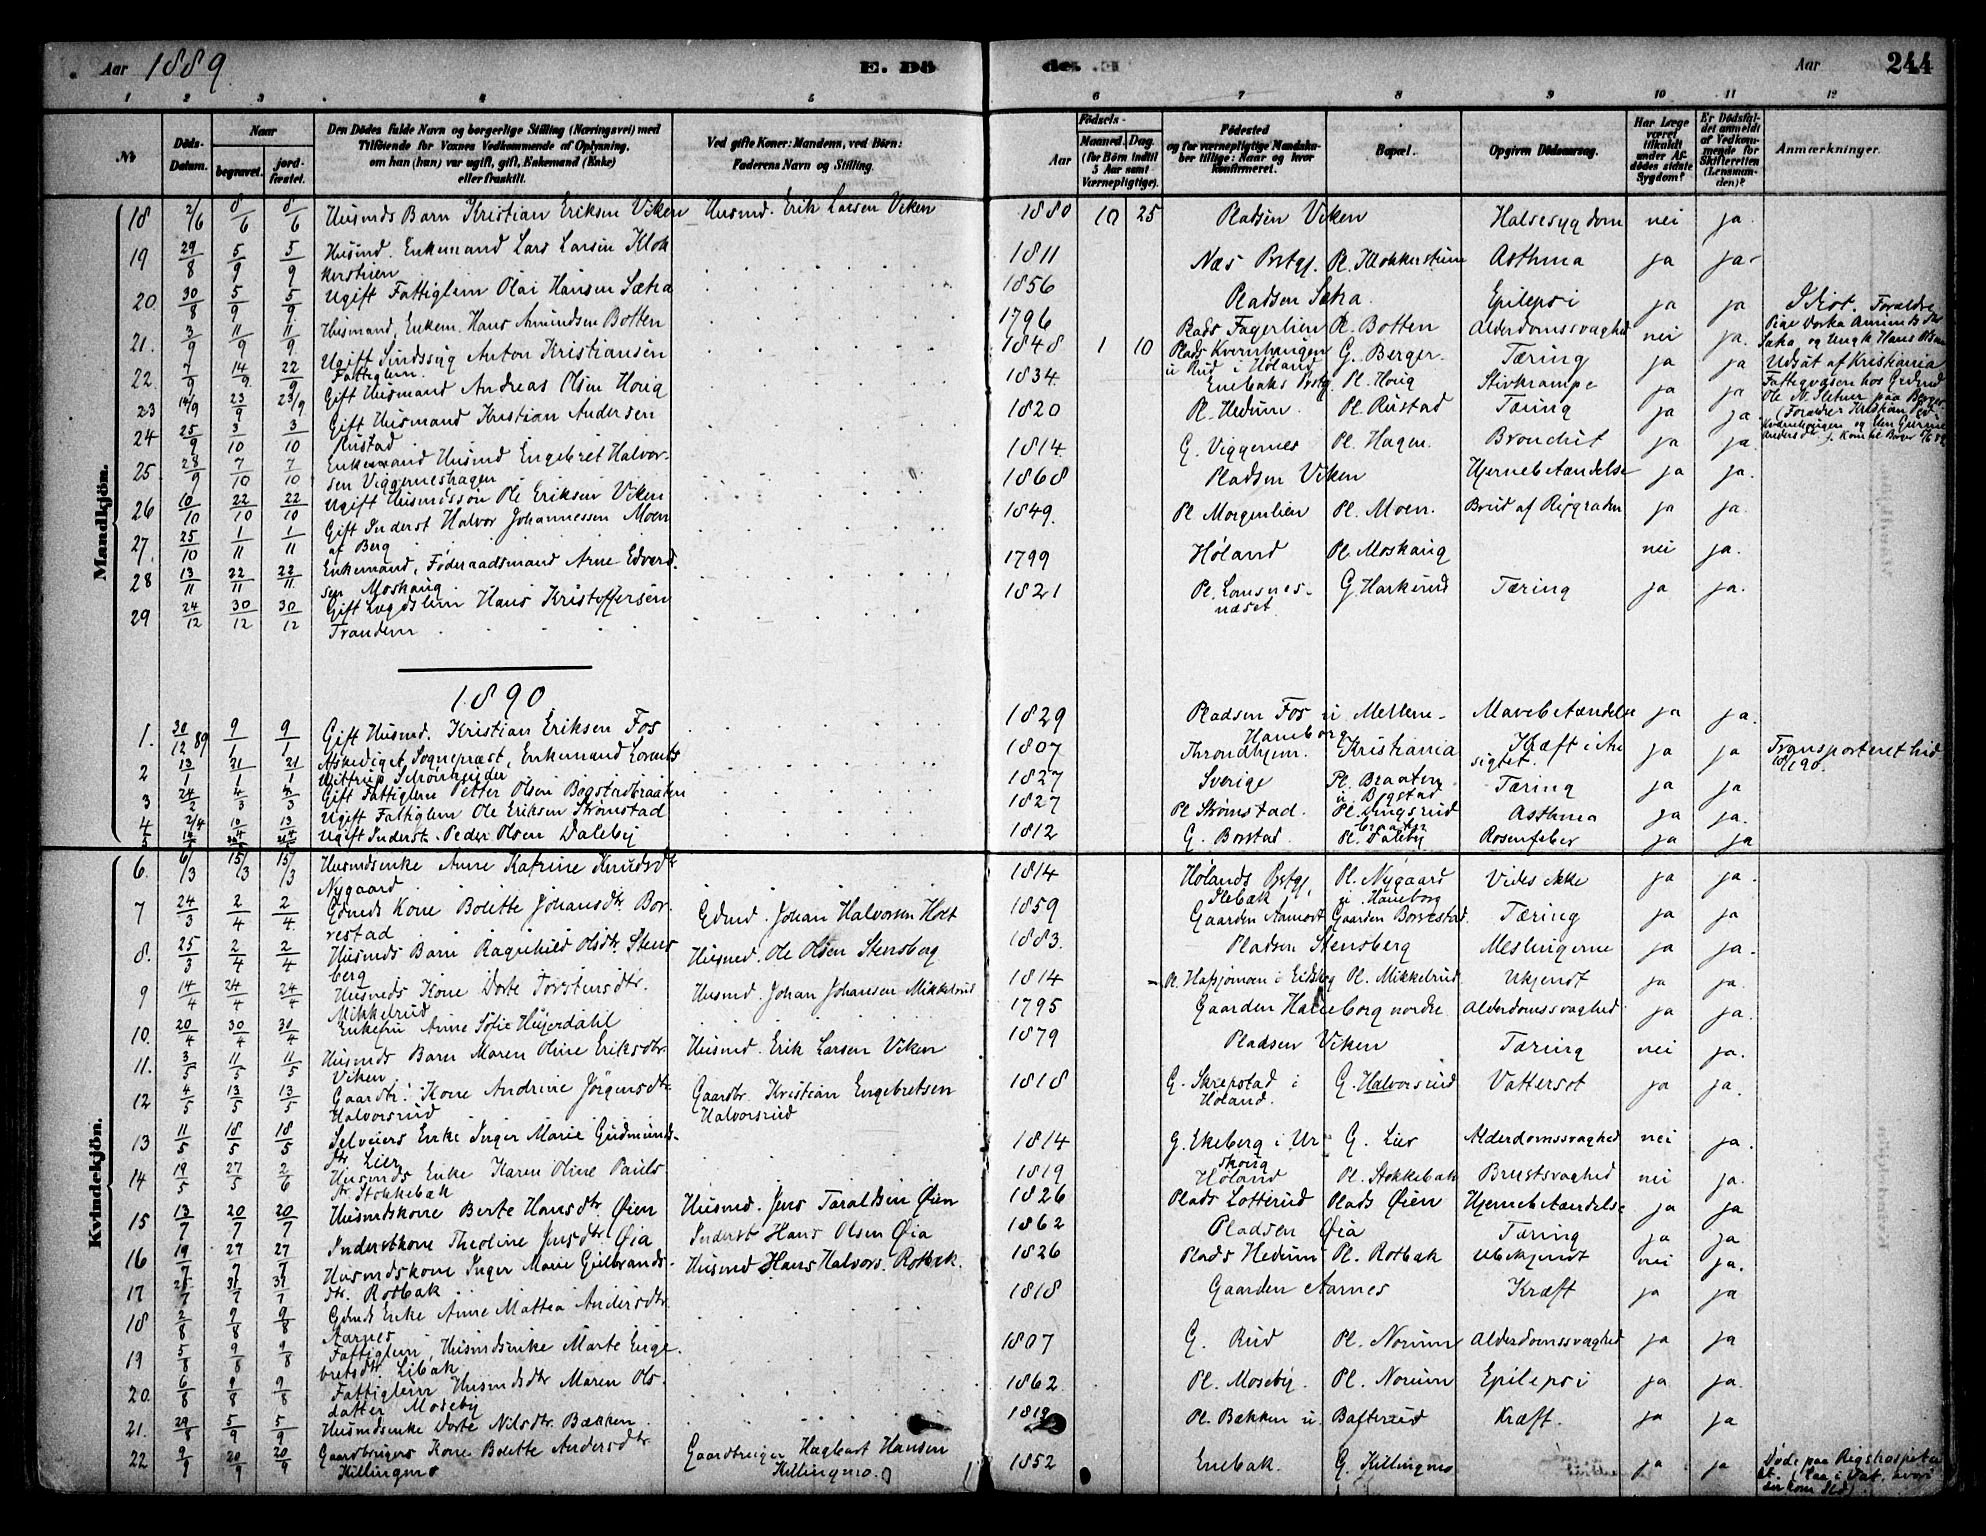 Aar 1889. E. Dö de. E Aar 244
1 2 3 4 5 6 7 8 9 10 11 12
No
Döds-Datum.
Naar
begravet. jordfæstet.
Den Dödes fulde Navn og borgerlige Stilling (Næringsvei) med
Tilföiende for Voxnes Vedkommende af Oplysning,
om han (hun) var ugift, gift, Enkemand (Enke)
eller fraskilt.
Ved gifte Koner: Mandens, ved Börn:
Faderens Navn og Stilling.
Födsels-
Aar Maaned. Dag.
(for Börn indtil
5 Aar samt
Værnepligtige).
Födested
og for værnepligtige Mandskaber tillige: Naar og hvor
konfirmeret.
Bopæl.
Opgiven Dödsaarsag.
Har Læge været tilkaldt under Afdödes sidste Sygdom?
Er Dödsfaldet anmeldt af Vedkommende for Skifteretten (Lensmanden)?
Anmærkninger.
Mandkjön.
18 2/6 8/6 8/6 Husmds Barn Kristian Eriksen Viken Husmd. Erik Larsen Viken 1880 10 25 Pladsen Viken Halsesygdom nei ja
19 29/8 5/9 5/9 Husmd. Enkemand Lars Larsen Klokkerstuen 1811 Næs Prstgj. Pl. Klokkerstuen Asthma ja ja
20. 30/8 5/9 5/9 Ugift Fattiglem Olai Hansen Sætra 1856 Pladsen Sætra. Epilepsi ja ja Idiot. Forældre
21. 3/9 11/9 11/9 Husmand, Enkem. Hans Amundsen Botten 1796 Plads Fagerlien Pl. Botten Alderdomssvaghed nei ja.
22. 7/9 14/9 22/9 Ugift Sindssyg Anton Kristiansen Fattiglem. 1848 1 10 Plads Kvernhaugen u Rud i Høland G. Berger. Tæring ja ja Udsat af Kristiania
Fattigvæsen hos Grdmd
23 14/9 23/9 23/9 Gift Husmand Andreas Olsen Horig 1834 Enebaks Prstg. Pl. Horig Stivkrampe ja ja
24 25/9 3/10 3/10 Gift Husmand Kristian Andersen Rustad 1820 Pl. Hedum. Pl. Rustad Tæring ja ja
25 28/9 7/10 7/10 Enkemand Husmd Engebret Halvorsen Viggerneshagen 1814 G. Viggernes Pl. Hagen. Bronchit ja ja
26 10/10 22/10 22/10 Ugift Husmdssøn Ole Eriksen Viken 1868 Pladsen Viken Hjernebetændelse ja ja
27. 25/10 1/11 1/11 Gift Inderst Halvor Johannessen Moen af Berg 1849. Pl. Morgenlien Pl. Moen. Brud af Rygraden ja ja
28 13/11 22/11 22/11 Enkemand, Føderaadsmand Arne Edvardsen Moskaug 1799 Høland Pl. Moskaug nei ja.
29 24/12 30/12 30/12 Gift Lægdslem Hans Kristoffersen Trandem 1821 Pl. Lomsnesnæset. G. Harkerud Tæring ja ja.
1890
1. 30/12 89 9/1 9/1 Gift Husmd. Kristian Eriksen Fos 1829 Pladsen Fos u Mellem-Haneborg Mavebetændelse ja ja.
2 13/1 21/1 21/1 Afskediget Sognepræst, Enkemand Lorents Wittrup Schønheyder 1807 Throndhjem. Kristiania Kræft i Ansigtet. ja ja Transporteret hid
3 24/2 4/3 4/3 Gift Fattiglem Petter Olsen Bogstadbraaten 1827 Sverige Pl. Braaten u Bogstad Tæring ja ja
4 2/4 13/4 Ugift Fattiglem Ole Eriksen Strømstad 1827 Pl. Strømstad. Pl. Ungsrud braaten Asthma ja ja.
5 Ugift Inderst. Peder Olsen Daleby 1812 G. Borstad Pl. Daleby Rosenfeber ja ja
Kvindekjön.
6. 6/3 15/3 15/3 Husmdsenke Anne Katrine Knudsdtr Nygaard 1814 Hølands Prstgj. Pl. Nygaard u. Haneborg Vides ikke ja ja
7 24/3 2/4 2/4 Gdmds Kone Bolette Johansdtr. Borrestad Gdmd. Johan Halvorsen Holt 1859 Gaarden Aamodt Gaarden Borrestad. Tæring ja ja
8. 25/3 2/4 2/4 Husmds Barn Ragnhild Olsdtr. Stensberg Husmd. Ole Olsen Stensberg 1883. Pladsen Stensberg Meslingerne ja ja
9 14/4 24/4 24/4 Husmds Kone Dorte Torstensdtr. Mikkelrud Husmd. Johan Johansen Mikkelrud 1814 Pl. Mikkelrud Ukjendt ja ja.
10. 20/4 30/4 30/4 Enkefru Anne Sofie Heyerdahl 1795 Gaarden Haneborg nordre Alderdomssvaghed ja ja.
11. 3/5 11/5 11/5 Husmds Barn Maren Oline Eriksdtr. Viken Husmd. Erik Larsen Viken 1879 Pladsen Viken Tæring nei ja.
12 4/5 13/5 13/5 Gaardbr. Kone Andrine Jörgensdtr. Halvorsrud Gaardbr. Kristian Engebretsen Halvorsrud 1818 G. Skrepstad i Høland. G. Halvorsrud Vattersot ja ja.
13 11/5 18/5 18/5 Selveiers Enke Inger Marie Gudmundsdtr Lier 1814 G. Ekeberg i Urskoug G. Lier Alderdomssvaghed nei ja.
14 19/5 27/5 2/6 Husmds Enke Karen Oline Paulsdtr. Stokkebak 1819 Høland Pl. Stokkebak Brystsvaghed nei ja.
15 13/7 20/7 20/7 Husmdskone Berte Hansdtr Øien Husmd. Jens Taraldsen Øien 1826 Plads Lotterud Plads Øien Hjernebetændelse ja ja
16 19/7 27/7 27/7 Inderstkone Theoline Jensdtr Øia Inderst Hans Olsen Øia 1862 Pladsen Øia Tæring ja ja
17 25/7 31/7 31/7 Husmdskone Inger Marie Gulbrandsdtr. Rotbak Husmd Hans Halvors. Rotbak. 1826 Plads Hedum Pl. Rotbak Ubekjendt nei ja.
18 2/8 9/8 9/8 Gdmds Enke Anne Mattea Andersdtr. Aarnes 1818 Gaarden Aarnes Kræft ja ja
19 5/8 9/8 9/8 Fattiglem, Husmdsenke Marte Engebretsdtr. Libak 1807 G. Rud Pl. Norum Alderdomssvaghed ja ja
20. 6/8 9/8 9/8 Fattiglem Husmdsdtr Maren Olsdatter Moseby 1862 Pl. Moseby. Pl. Norum Epilepsi ja ja
21. 29/8 5/9 5/9 Husmdsenke Dorte Nilsdtr. Bækken 1819 Pl. Bækken u. Bafterud Kræft. ja ja
22 9/9 20/9 20/9 Gaardbrugers Kone Bolette Andersdtr Killingmo Gaardbruger Hagbart Hansen Killingmo. 1852 Enebak. G. Killingmo ja ja Døde paa Rigshospitalet.